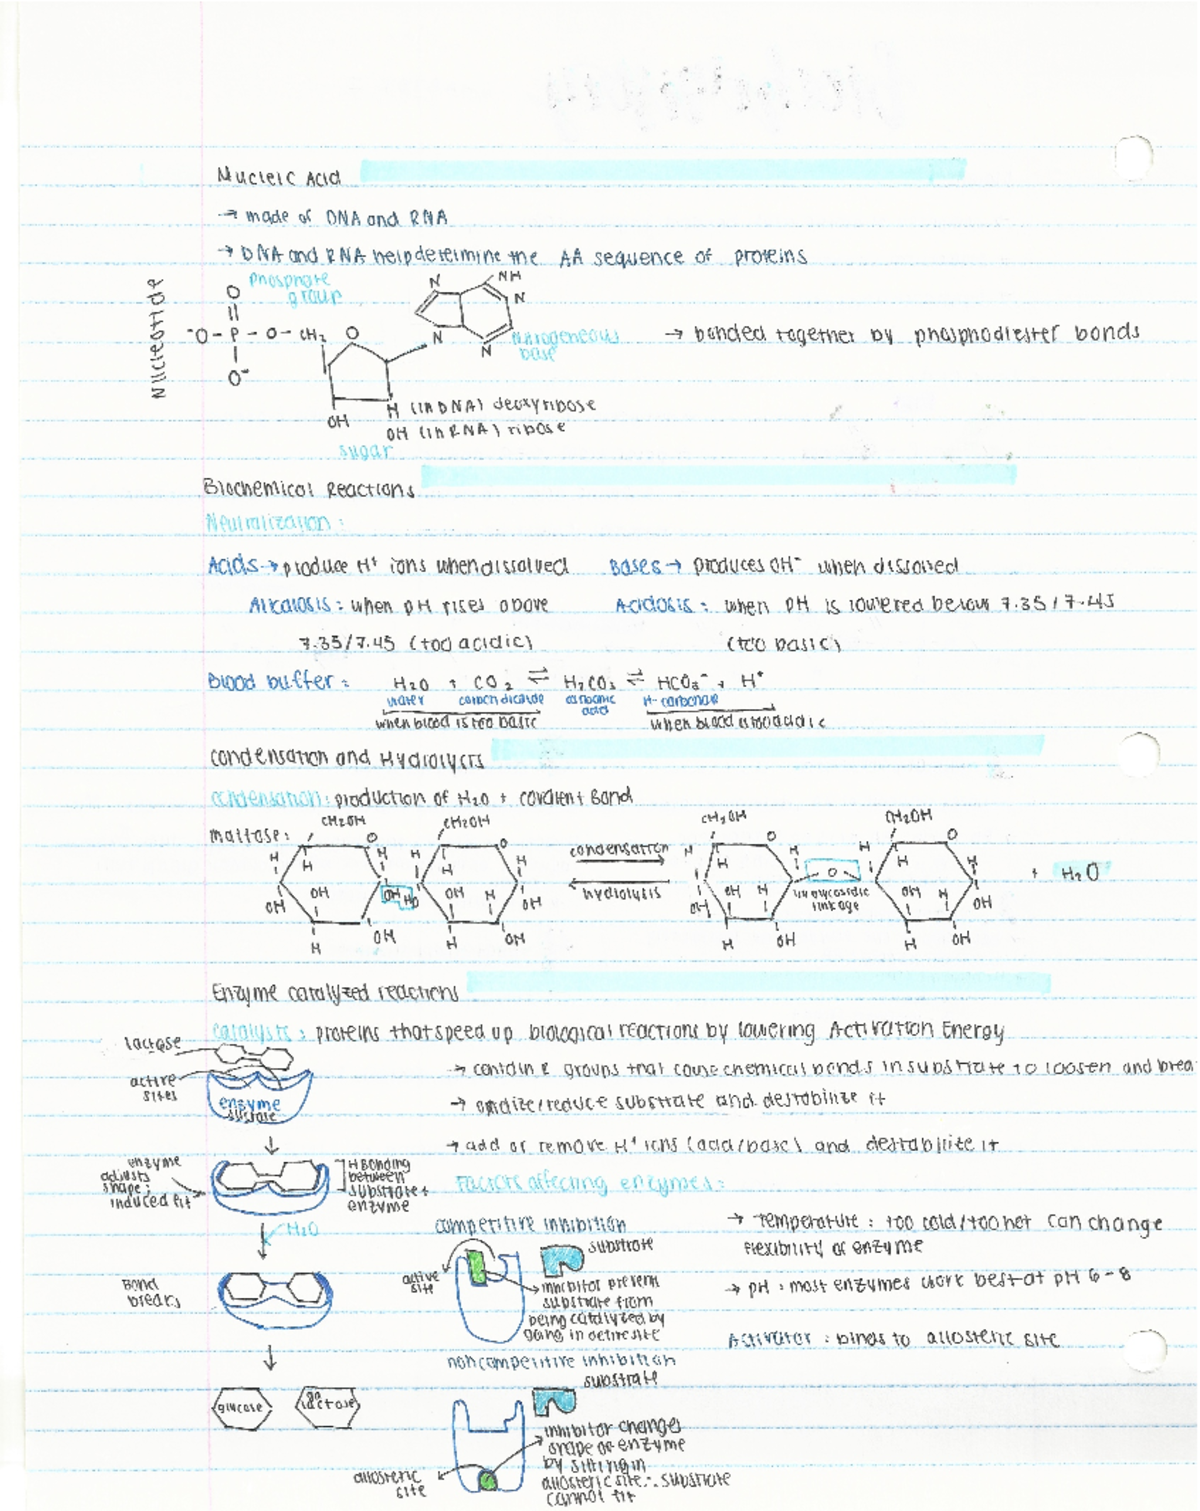 Nucleic Acid
→ made of DNA and RNA
→ DNA and RNA help determine the AA sequence of proteins
Nucleotide
phosphate group
O
⁻O - P - O - CH₂
O⁻
O
N
NH
N
N
N
nitrogeneous base
→ bonded together by phosphodiester bonds
OH
H (in DNA) deoxyribose
OH (in RNA) ribose
sugar
Biochemical Reactions
Neutralization:
Acids → produce H⁺ ions when dissolved
Bases → produces OH⁻ when dissolved
Alkalosis: when pH rises above
7.35/7.45 (too acidic)
Acidosis: when pH is lowered below 7.35/7.45
(too basic)
Blood buffer: H₂O + CO₂ ⇌ H₂CO₃ ⇌ HCO₃⁻ + H⁺
water carbon dioxide carbonic acid H-carbonate
when blood is too basic
when blood is too acidic
Condensation and Hydrolysis
condensation: production of H₂O + covalent Bond
maltose:
CH₂OH CH₂OH
O
H H H H
H H
OH OH H
OH OH HO OH
H OH H OH
condensation
hydrolysis
CH₂OH CH₂OH
O O
H H H H
H H
O
OH H OH H
OH OH
H OH H OH
linkage
+ H₂O
Enzyme catalyzed reactions
catalysts: proteins that speed up biological reactions by lowering Activation Energy
→ contain R groups that cause chemical bonds in substrate to loosen and brea
→ oxidize/reduce substrate and destabilize it
→ add or remove H⁺ ions (acid/base) and destabilite it
lactose
active sites
enzyme
enzyme adjusts shape: induced fit
H Bonding between substrate + enzyme
H₂O
Bond breaks
glucose
galactose
Factors affecting enzymes:
→ Temperature: too cold/too hot can change
flexibility of enzyme
→ pH: most enzymes work best at pH 6-8
Activator: binds to allosteric site
competitive inhibition
substrate
active site
inhibitor prevent
substrate from
being catalyzed by
going in active site
noncompetitive inhibition
substrate
inhibitor changes
shape of enzyme
by sitting in
allosteric site ∴ substrate
cannot fit
allosteric site